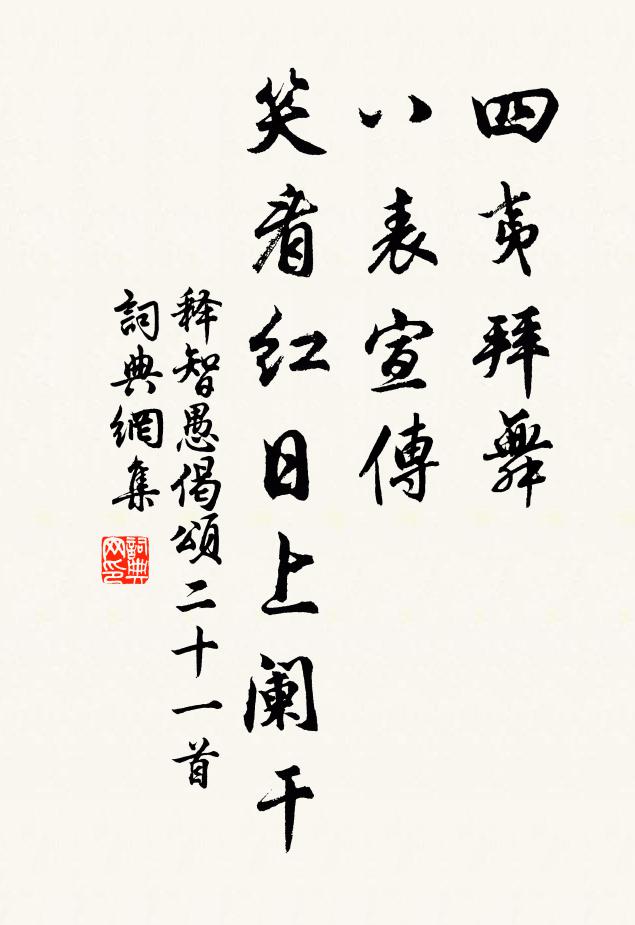 四夷拜舞
八表宣傳
笑看红日上阑干
释智愚偈頌二十一首
詞典網集
詞典网印